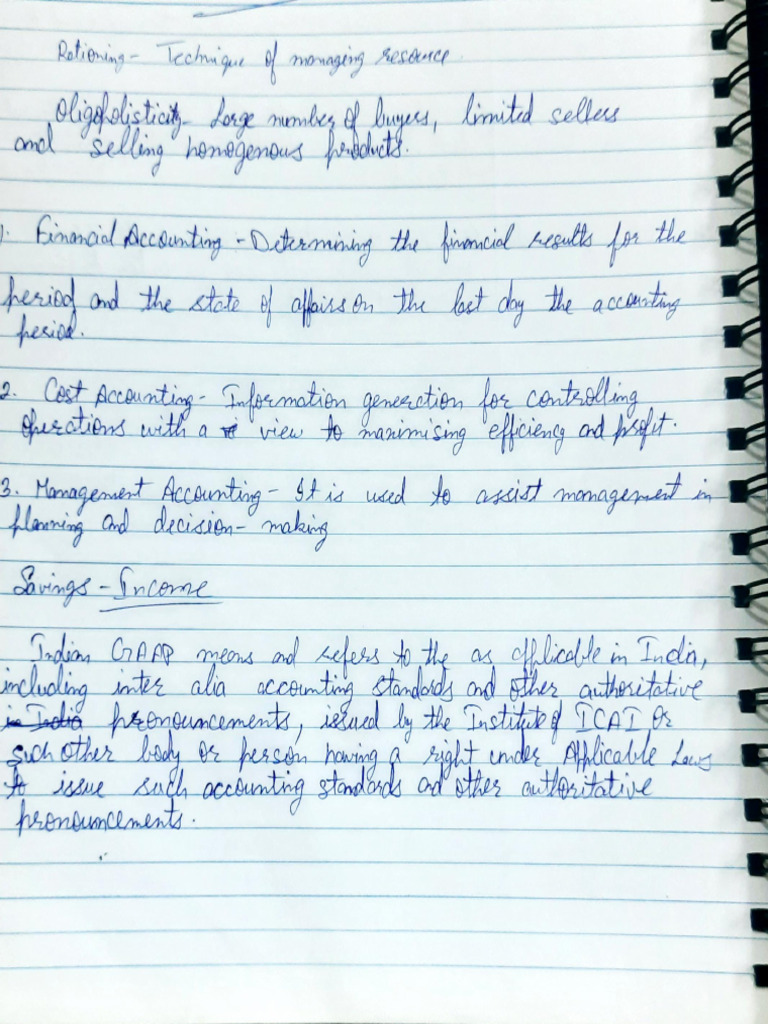 Rationing - Technique of managing resource.
Oligopolisticity - Large number of buyers, limited sellers
and selling homogenous products.
1. Financial Accounting - Determining the financial results for the
period and the state of affairs on the last day the accounting
period.
2. Cost Accounting - Information generation for controlling
operations with a view to maximising efficiency and profit.
3. Management Accounting - It is used to assist management in
planning and decision-making
Savings - Income
Indian GAAP means and refers to the as applicable in India,
including inter alia accounting standards and other authoritative
in India pronouncements, issued by the Institute of ICAI or
such other body or person having a right under Applicable Laws
to issue such accounting standards and other authoritative
pronouncements.